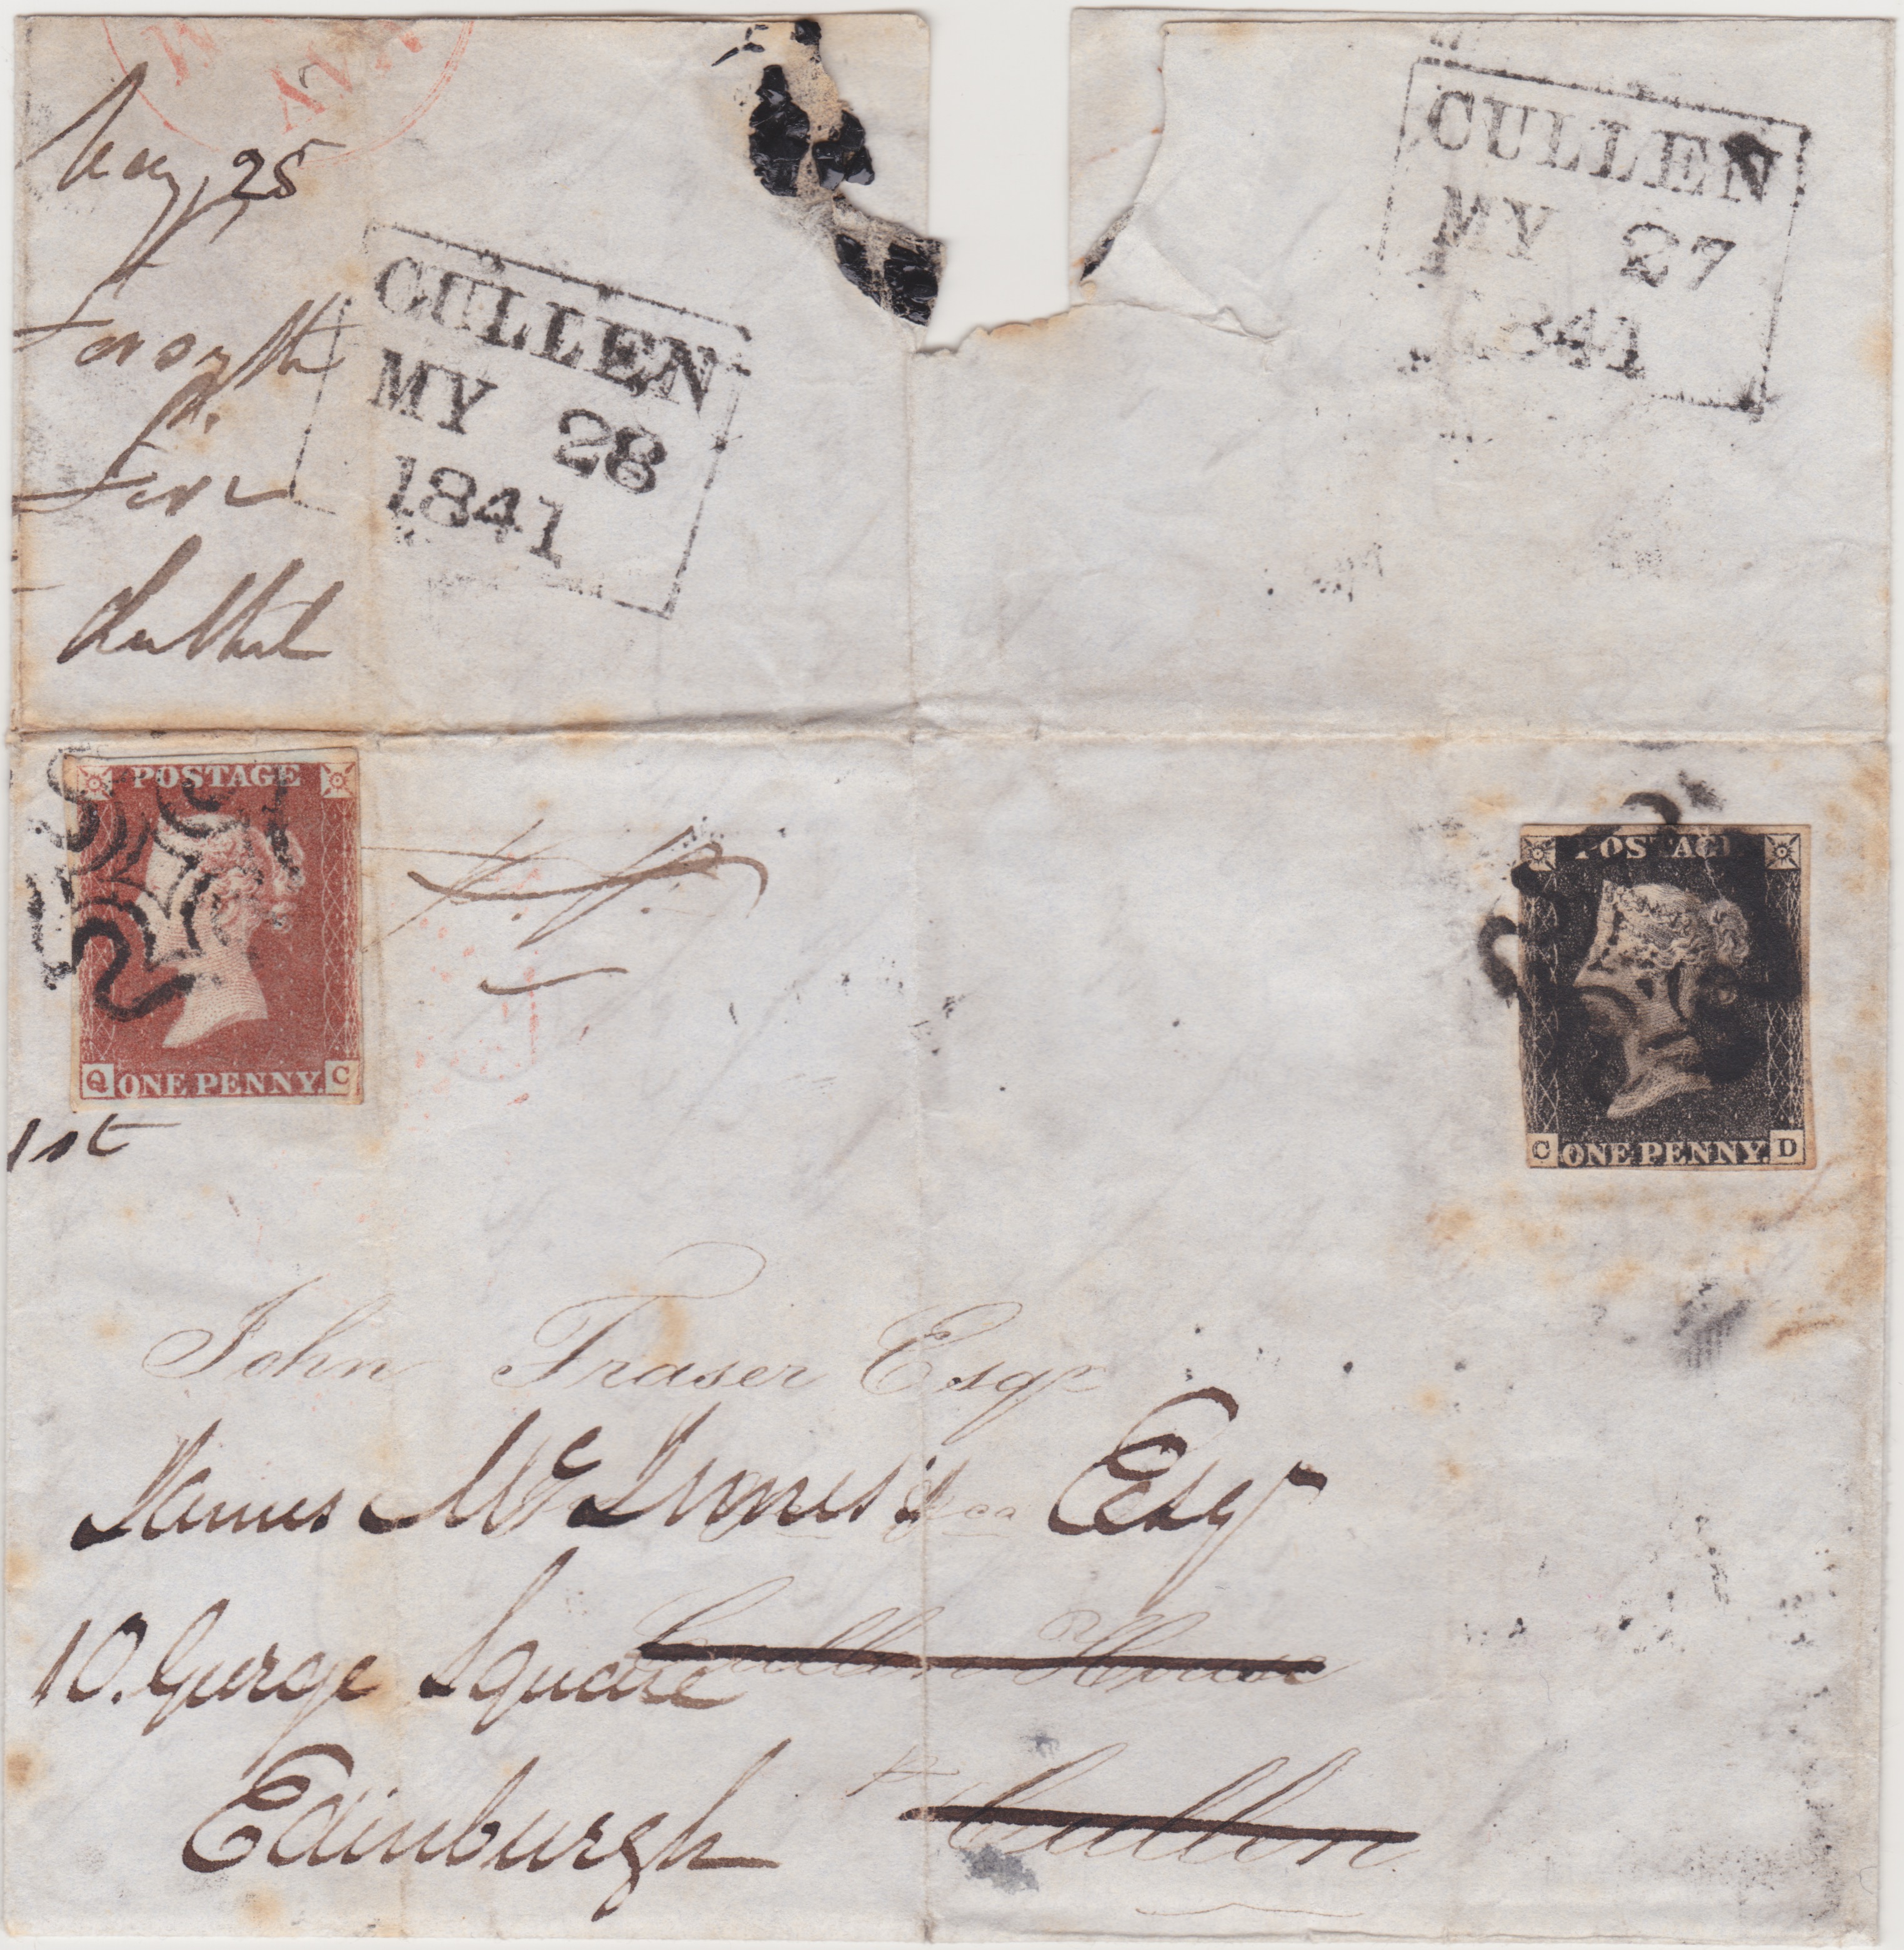 May, 25
Forsyth
CULLEN
MY 28
1841
CULLEN
MY 27
1841
POSTAGE
Q ONE PENNY. C
POSTAGE
C ONE PENNY. D
1st
John Fraser Esqr
James McInnis Esqr
10. George Square
Cullen House
Edinburgh
Cullen